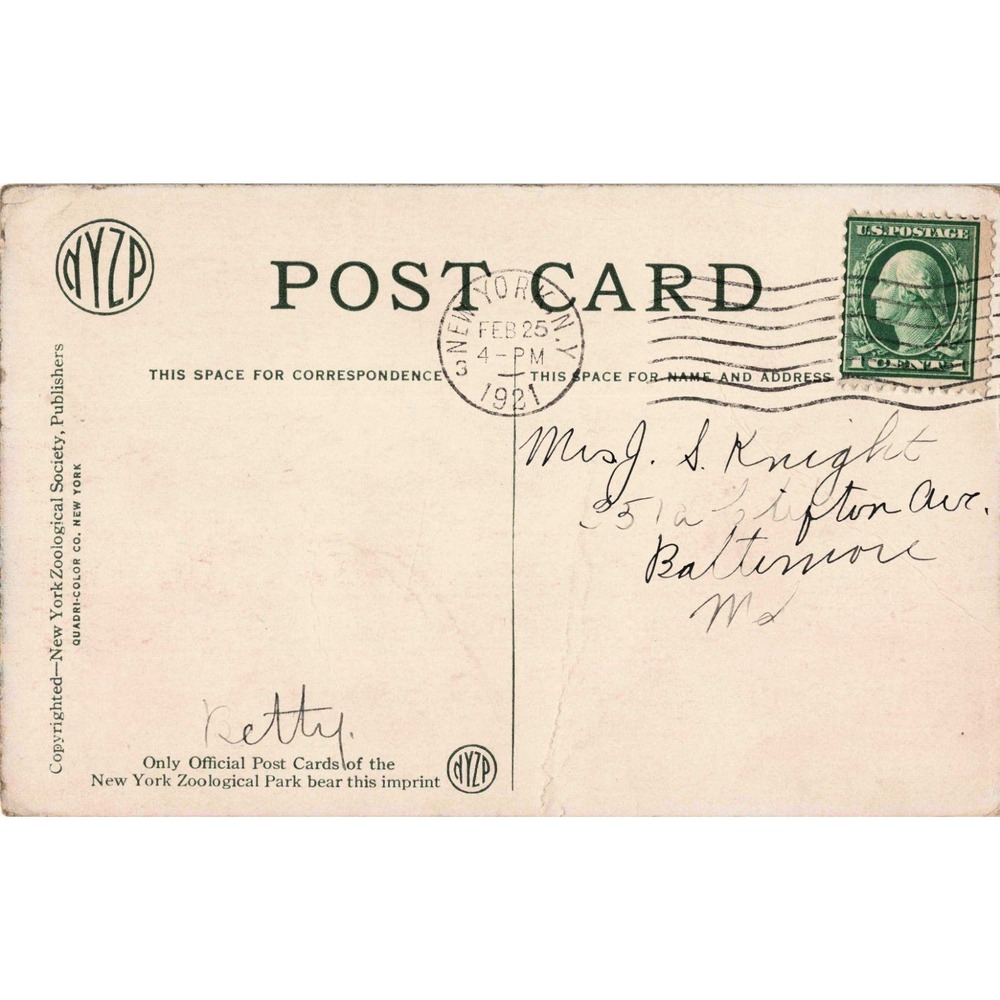 NYZP
POST CARD
U.S. POSTAGE
1 CENT 1
NEW YORK, N.Y.
3
FEB 25
4-PM
1921
THIS SPACE FOR CORRESPONDENCE
THIS SPACE FOR NAME AND ADDRESS
Copyrighted—New York Zoological Society, Publishers
QUADRI-COLOR CO. NEW YORK
Mrs J. S. Knight
Ave.
Baltimore
Md
Betty.
Only Official Post Cards of the
New York Zoological Park bear this imprint
NYZP